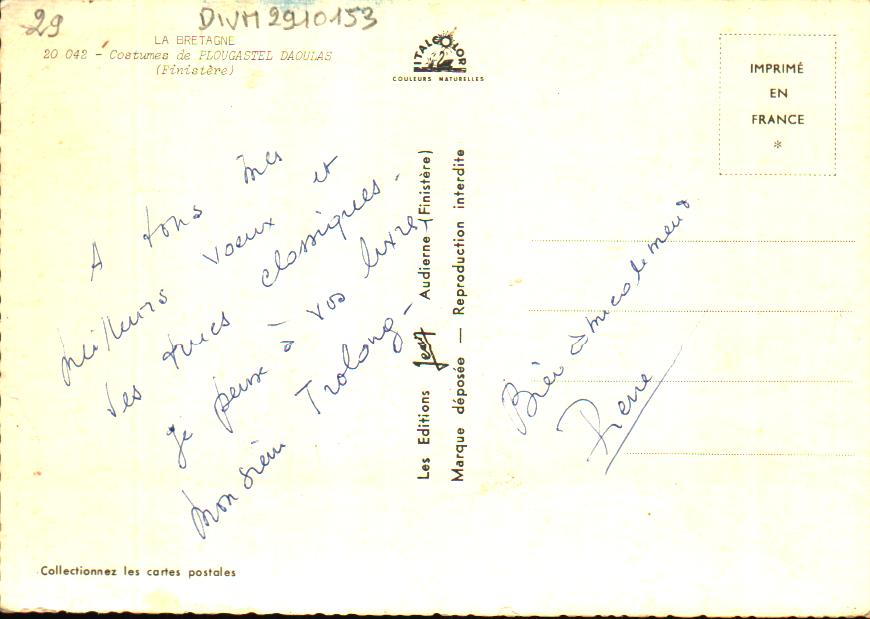 29
DIVM2910153
LA BRETAGNE
20 042 - Costumes de PLOUGASTEL DAOULAS
(Finistère)
ITALCOLOR
COULEURS NATURELLES
IMPRIMÉ
EN
FRANCE
*
A tous mes
meilleurs voeux et
les trucs classiques-
je pense à vos livres,
monsieur Trolong-
Les Editions Jean Audierne (Finistère)
Marque déposée — Reproduction interdite
Bien amicalement
Pierre
Collectionnez les cartes postales